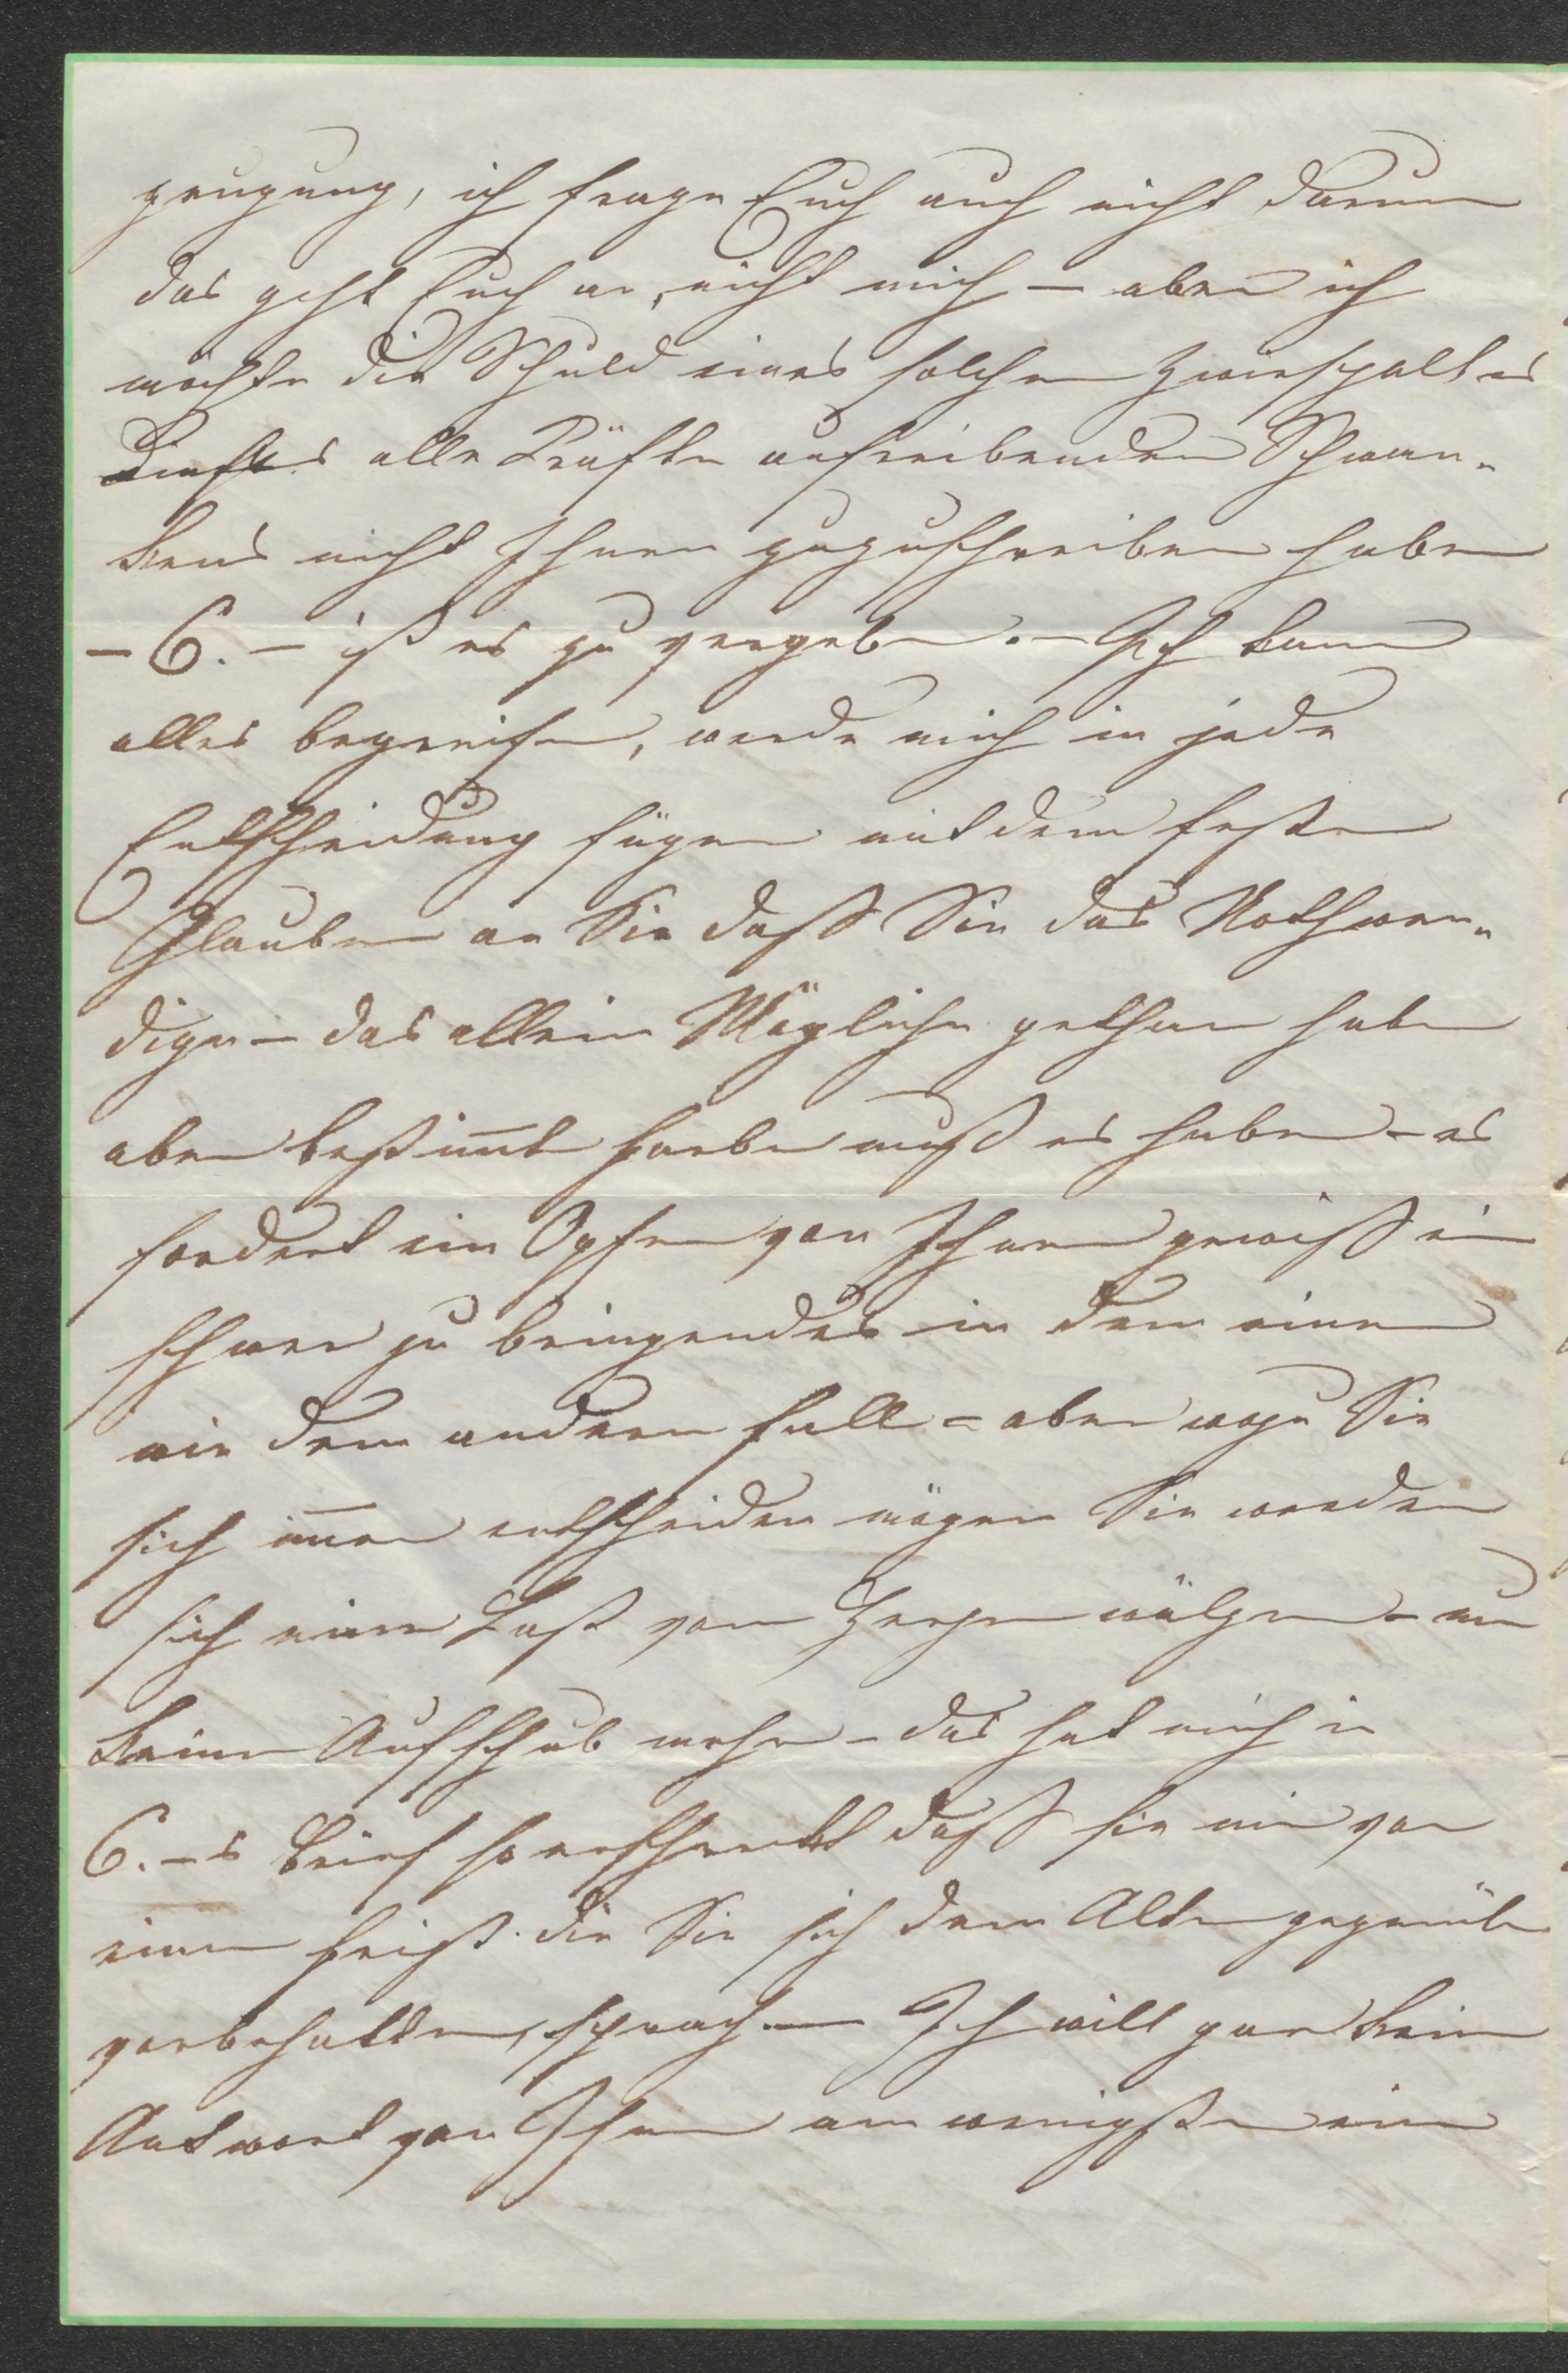 zeugung, ich frage Euch auch nicht darum
das geht Euch an, nicht mich – aber ich
möchte die Schuld eines solchen Zwiespaltes
dieses alle Kräfte aufreibenden Schwan-
kens nicht Ihnen zuzuschreiben haben
– C. – ist es zu vergeben. – Ich kann
alles begreifen, werde mich in jede
Entscheidung fügen mit dem festen
Glauben an Sie daß Sie das Nothwen-
dige – das allein Mögliche gethan haben
aber bestim̅te Farbe muß es haben – es
fordert ein Opfer von Ihnen gewiß ein
schwer zu bringendes in dem einen
wie dem andern Fall – aber wozu Sie
sich im̅er entscheiden mögen Sie werden
sich eine Last vom Herzen wälzen – nur
keinen Aufschub mehr – das hat mich in
C.–s Brief so erschreckt daß sie mir von
einer Frist die Sie sich dem Alten gegenüber
vorbehalten, sprach. – Ich will gar keine
Antwort von Ihnen am wenigsten eine